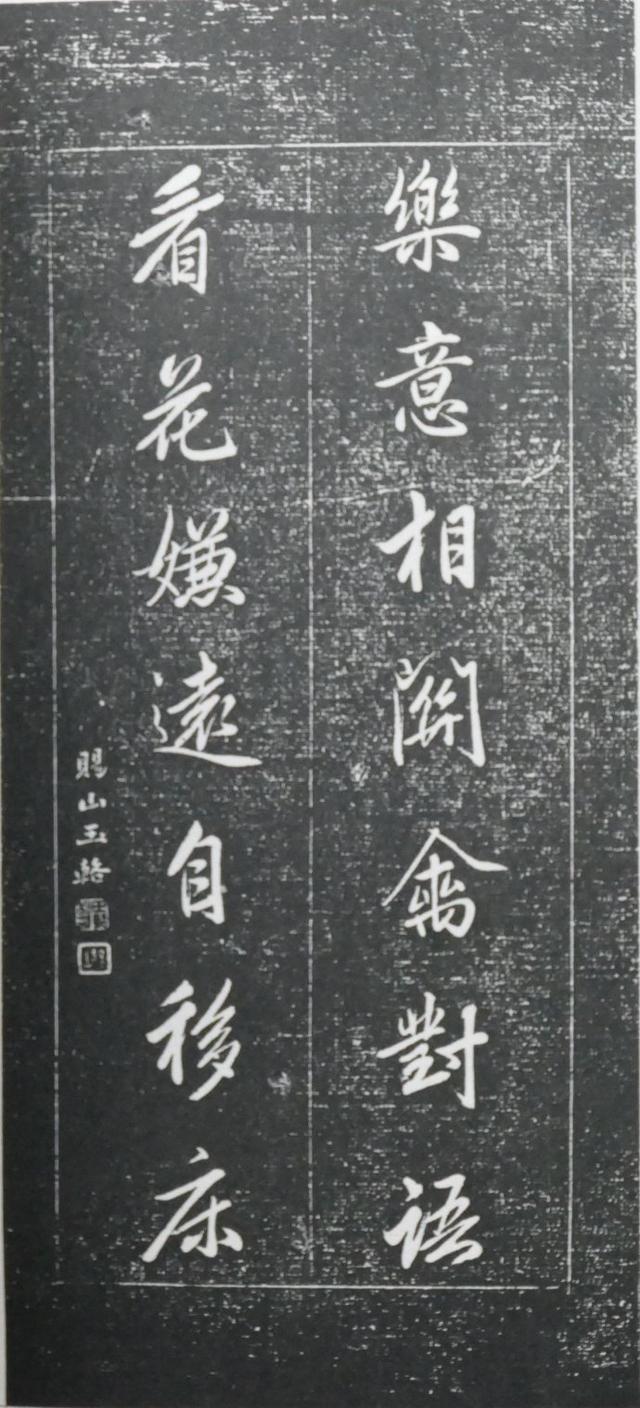 樂意相關禽對語
看花嫌遠自移床
賜山王輅